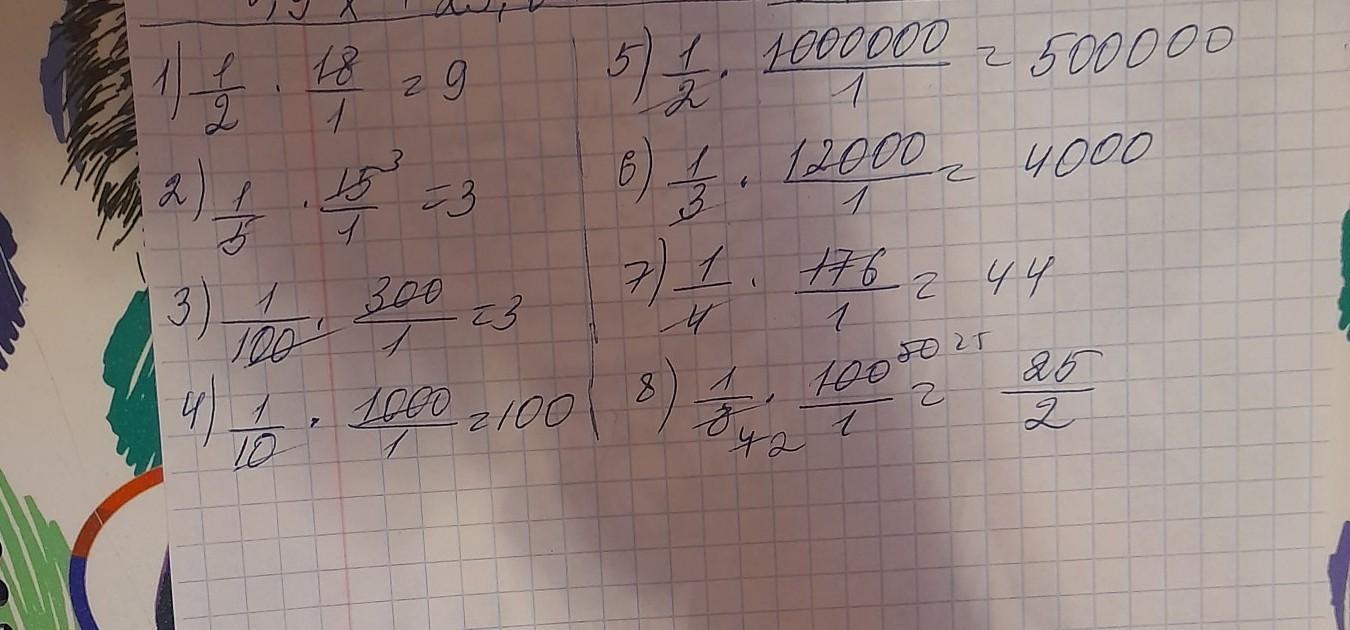 1) 1/2 · 18/1 = 9
2) 1/5 · 15/1 ³ = 3
3) 1/100 · 300/1 = 3
4) 1/10 · 1000/1 = 100
5) 1/2 · 1000000/1 = 500000
6) 1/3 · 12000/1 = 4000
7) 1/4 · 176/1 = 44
8) 1/8 4 2 · 100/1 50 25 = 25/2